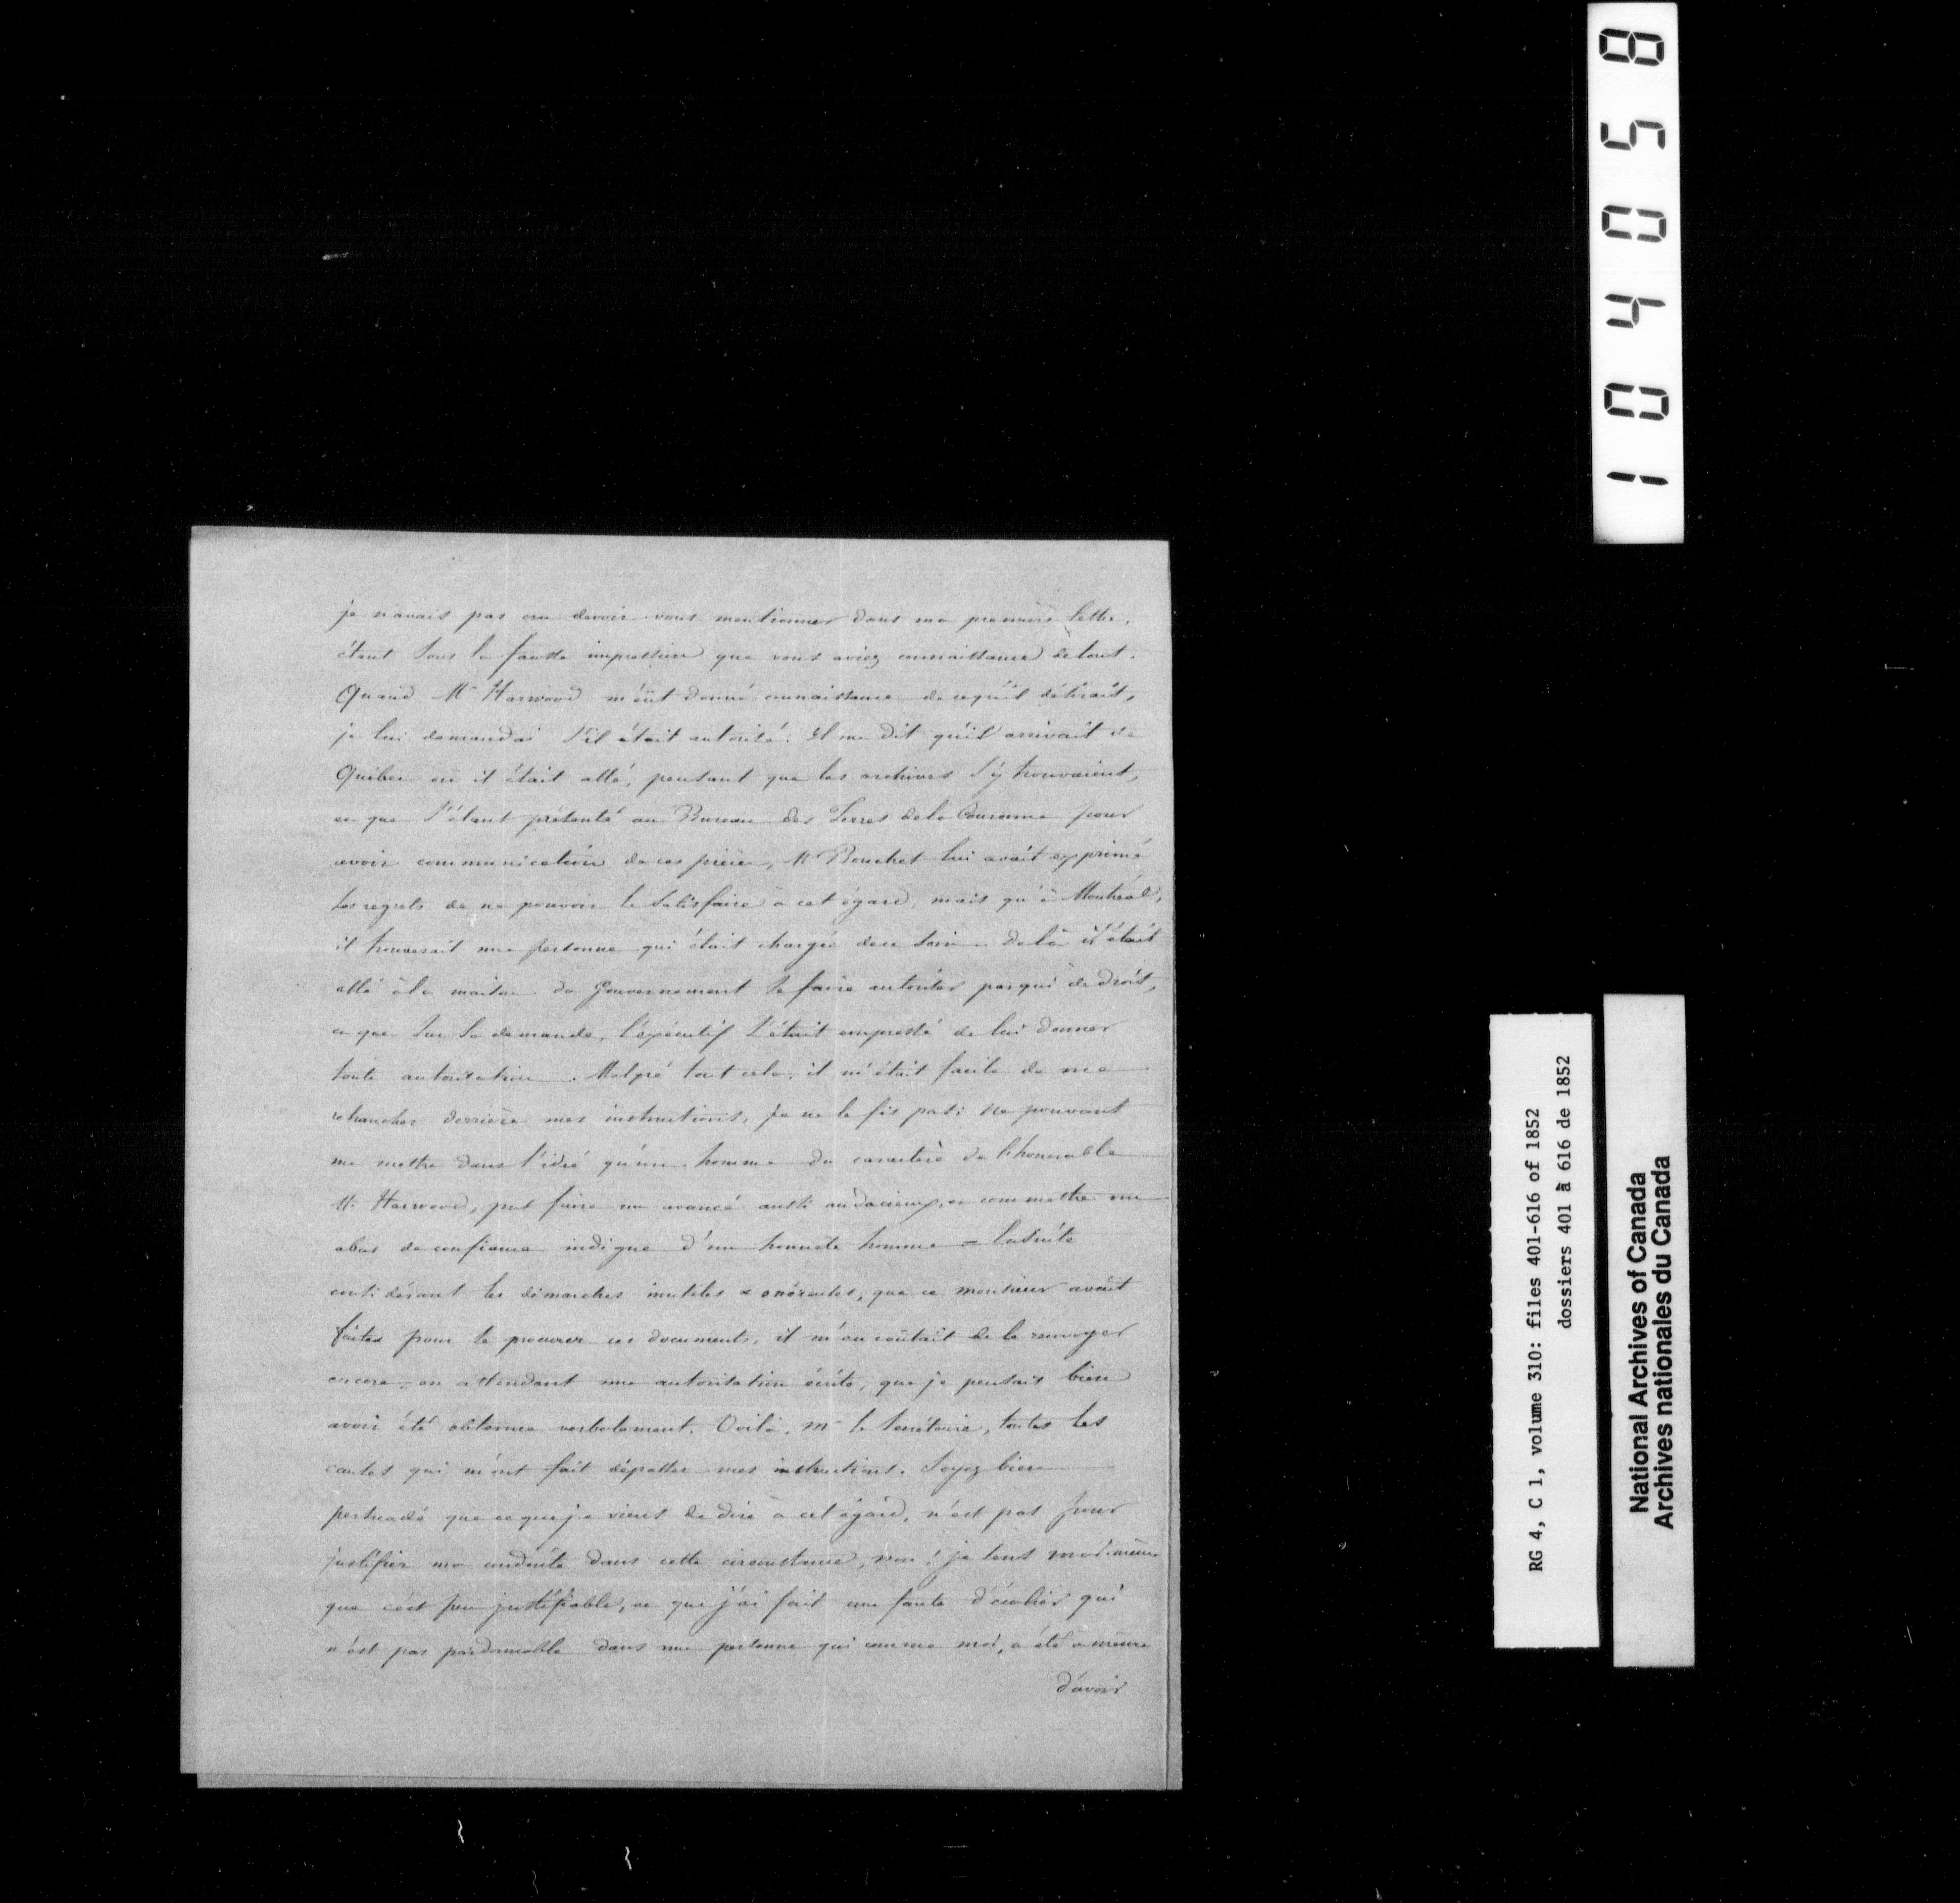 je n'avais pas cru devoir vous mentionner dans ma première lettre,
étant sous la fausse impression que vous aviez connaissance de tout.
Quand Mr Harwood m'eût donné connaissance de ce qu'il désirait,
je lui demandai s'il était autorisé. Il me dit qu'il arrivait de
Québec où il était allé, pensant que les archives s'y trouvaient,
et que s'étant présenté au Bureau des Terres de la Couronne pour
avoir communication de ces pièces, Mr Bouchet lui avait exprimé
ses regrets de ne pouvoir le satisfaire à cet égard, mais qu'à Montréal,
il trouverait une personne qui était chargée de ce soin - De là il était
allé à la maison du Gouvernement se faire autoriser par qui de droit,
et que sur sa demande, l'exécutif s'était empressé de lui donner
toute autorisation. Malgré tout cela, il m'était facile de me
retrancher derrière mes instructions, je ne le fis pas; ne pouvant
me mettre dans l'idée qu'un homme du caractère de l'honorable
Mr Harwood, put faire un avancé aussi audacieux, et commettre un
abus de confiance indigne d'un honnête homme - Ensuite
considérant les démarches inutiles & onéreuses, que ce monsieur avait
faites pour se procurer ces documents, il m'en coûtait de le renvoyer
encore, en attendant une autorisation écrite, que je pensais bien
avoir été obtenue verbalement. Voilà, Mr le Secrétaire, toutes les
causes qui m'ont fait dépasser mes instructions. Soyez bien
persuadé que ce que je viens de dire à cet égard, n'est pas pour
justifier ma conduite dans cette circonstance, non! je sens moi-même
que c'est peu justifiable, et que j'ai fait une faute d'écolier qui
n'est pas pardonnable dans une personne qui comme moi, a été à même
d'avoir
104058
RG 4, C 1, volume 310: files 401-616 of 1852
dossiers 401 à 616 de 1852
National Archives of Canada
Archives nationales du Canada